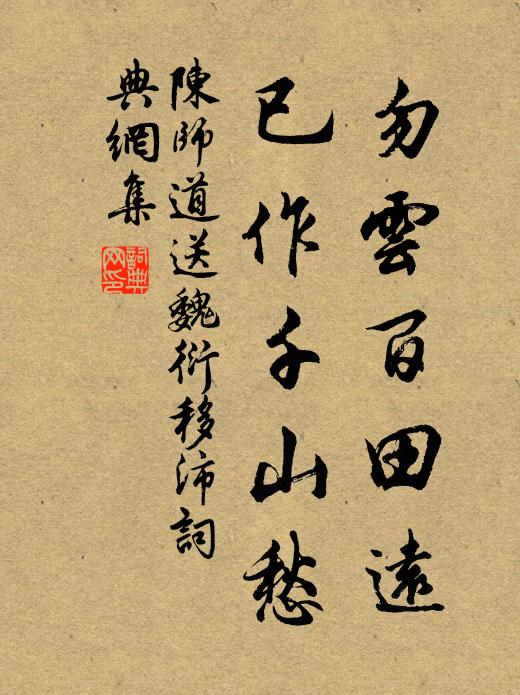 勿雲百田遠
已作千山愁
陳師道送魏衍移沛詞
典網集
詞典
网印